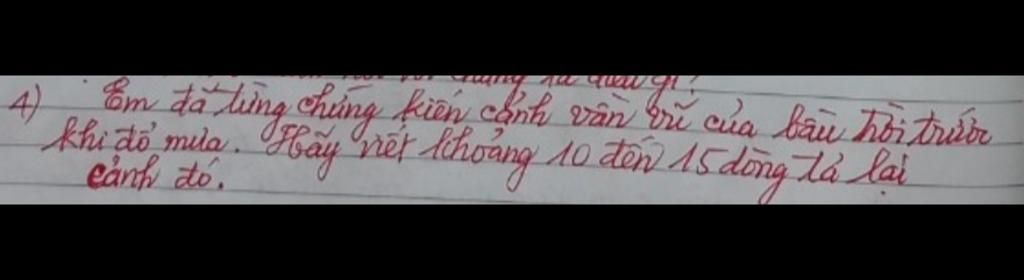 4) Em đã từng chứng kiến cảnh vần vũ của bầu trời trước
khi đổ mưa. Hãy viết khoảng 10 đến 15 dòng tả lại
cảnh đó.